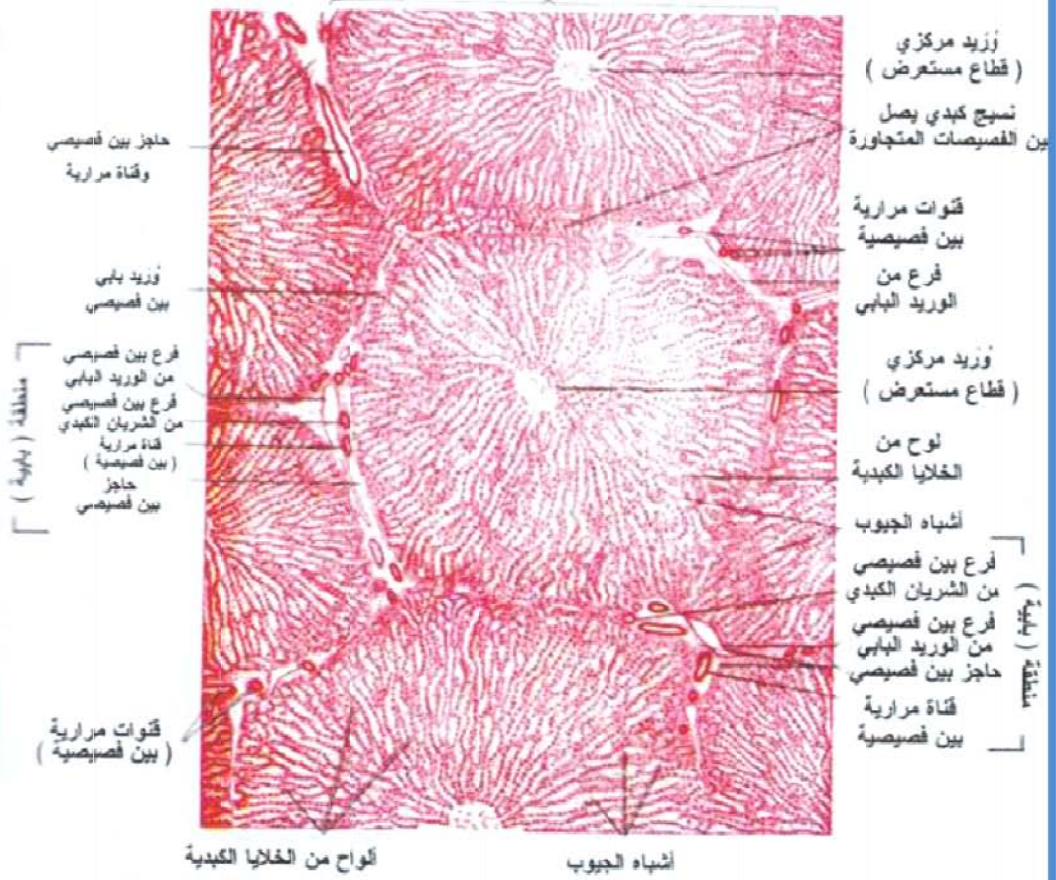 وُرَيد مركزي
( قطاع مستعرض )
نسيج كبدي يصل
بين الفصيصات المتجاورة
قنوات مرارية
بين فصيصية
فرع من
الوريد البابي
وُرَيد مركزي
( قطاع مستعرض )
لوح من
الخلايا الكبدية
أشباه الجيوب
فرع بين فصيصي
من الشريان الكبدي
فرع بين فصيصي
من الوريد البابي
حاجز بين فصيصي
قناة مرارية
بين فصيصية
منطقة ( بابية )
حاجز بين فصيصي
وقناة مرارية
وُرَيد بابي
بين فصيصي
فرع بين فصيصي
من الوريد البابي
فرع بين فصيصي
من الشريان الكبدي
قناة مرارية
( بين فصيصية )
حاجز
بين فصيصي
منطقة ( بابية )
قنوات مرارية
( بين فصيصية )
ألواح من الخلايا الكبدية
أشباه الجيوب